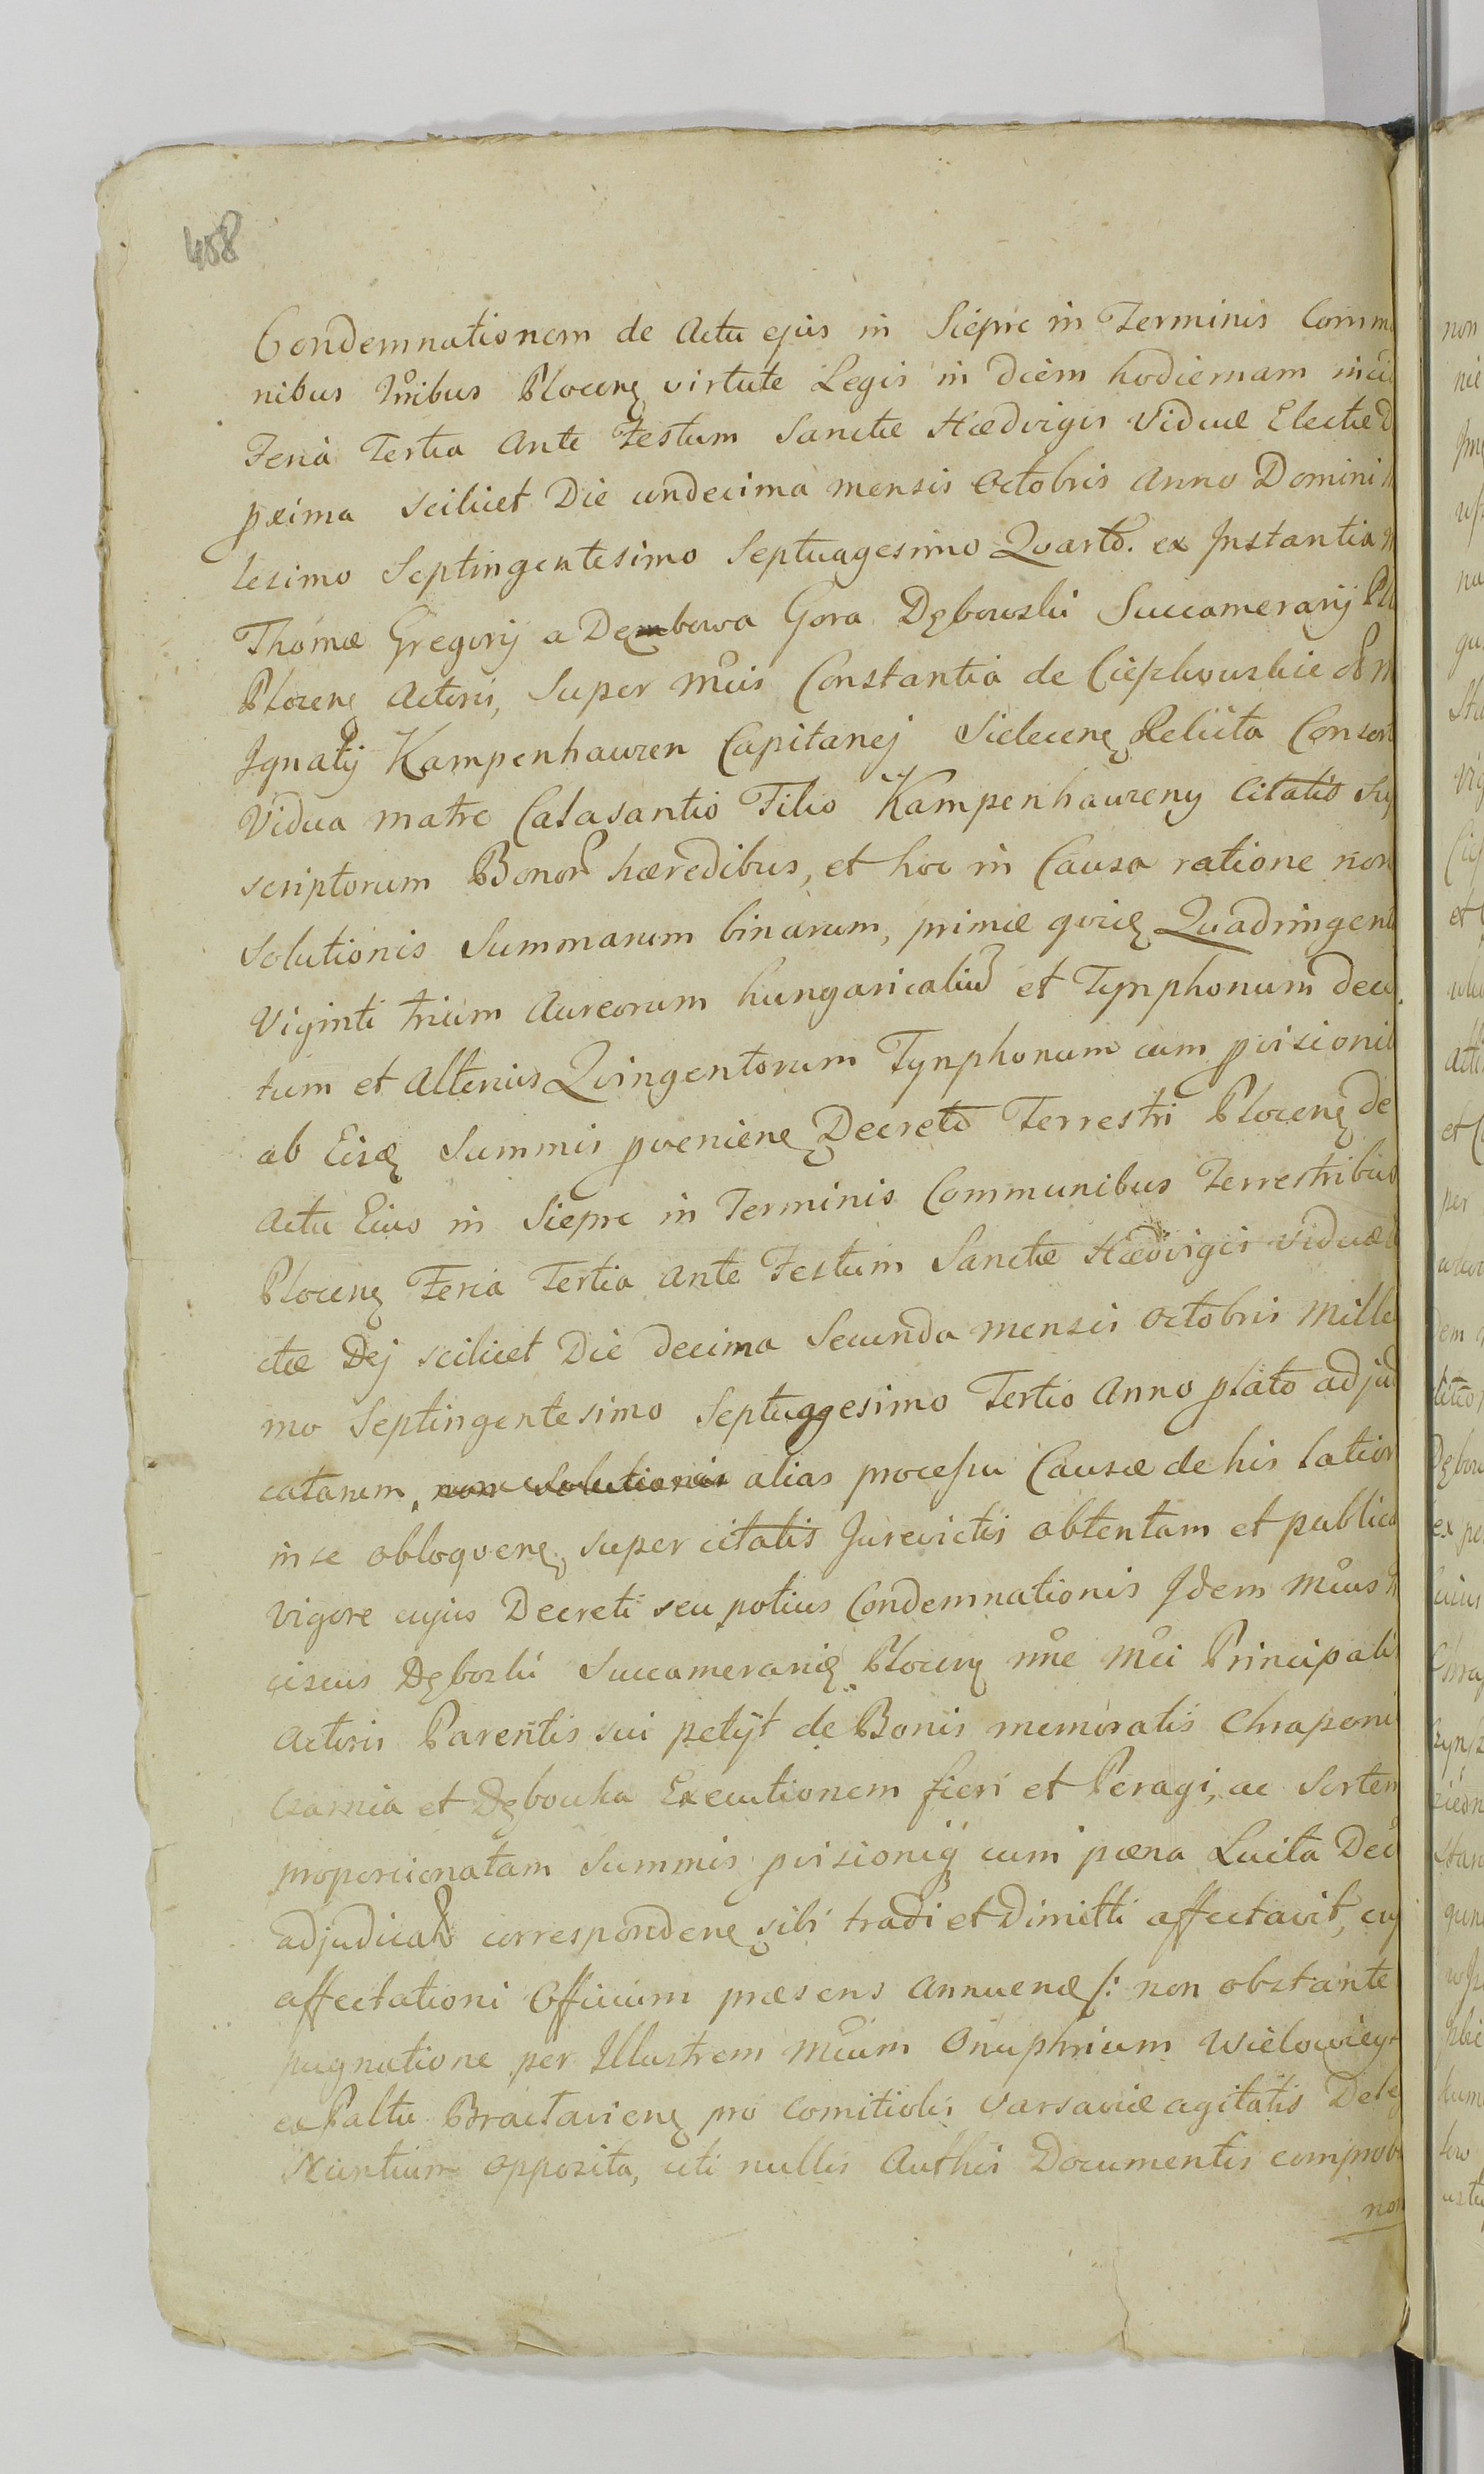 408
Condemnationem de Actu ejus in Siepre in Terminis Commu
nibus Trribus Plocenę virtute Legis in diem hodiernam inci
Feria Tertia Ante Festum Sanctæ Hædvigis Viduæ Electæ D
prima scilicet Die undecima mensis Octobris Anno Domini
lesimo Septingentesimo Septuagesimo Quarto. ex Instantia
Thomæ Gregorij a Dembowa Gora Dębowski Succamerarij
Plocenę Actoris, Super Mcis Constantia de Ciepluwskie
Ignatij Kampenhauzen Capitanej Sielecenę Relicta Consort
Vidua matre Calasantio Filio Kampenhauzeny Citatis Su
scriptorum Bonor hæredibus, et hoc in Causa ratione non
Solutionis Summarum binarum, primæ qvidę Quadringent
Viginti trium Aureorum hungaricaliu et Tynphonum dece
tum et Alterius Qvingentorum Tynphonum cum pvisionib
ab Eisdę Summis pvenienę Decreto Terrestri Plocenę de
Actu Eius in Siepre in Terminis Communibus Terrestribus
Plocenę Feria Tertia Ante Festum Sanctæ Hædvigis Viduæ
ctæ Dej scilicet Die decima Secunda mensis Octobris Mille
mo Septingentesimo Septuagesimo Tertio Anno plato adjud
catarum, non Solutionis alias processu Causæ de his lation
in se obloqvenę super citatis Jurevictis obtentam et publica
vigore cujus Decreti seu potius Condemnationis Idem Mcus
ciscus Dęboski Succamerarid Plocenę nne Mci Principalis
Actoris Parentis sui petijt de Bonis memoratis Chraponi
Czarnia et Dębowka Executionem fieri et Peragi, ac Sortem
proporcionatam Summis pvisioniq cum pæna Lucita Dec
adjudicat correspondenę sibi tradi et Dimitti affectavit, cuj
affectationi Officium præsens Annuendo /: non obstante
pugnatione per Illustrem Mcum Onuphrium Wielowiey
ex Paltu Bractavienę pro Comitiolis Varsaviæ agitatis Dele
Nuntium opposita, uti nullis Authis Documentis comprob
non